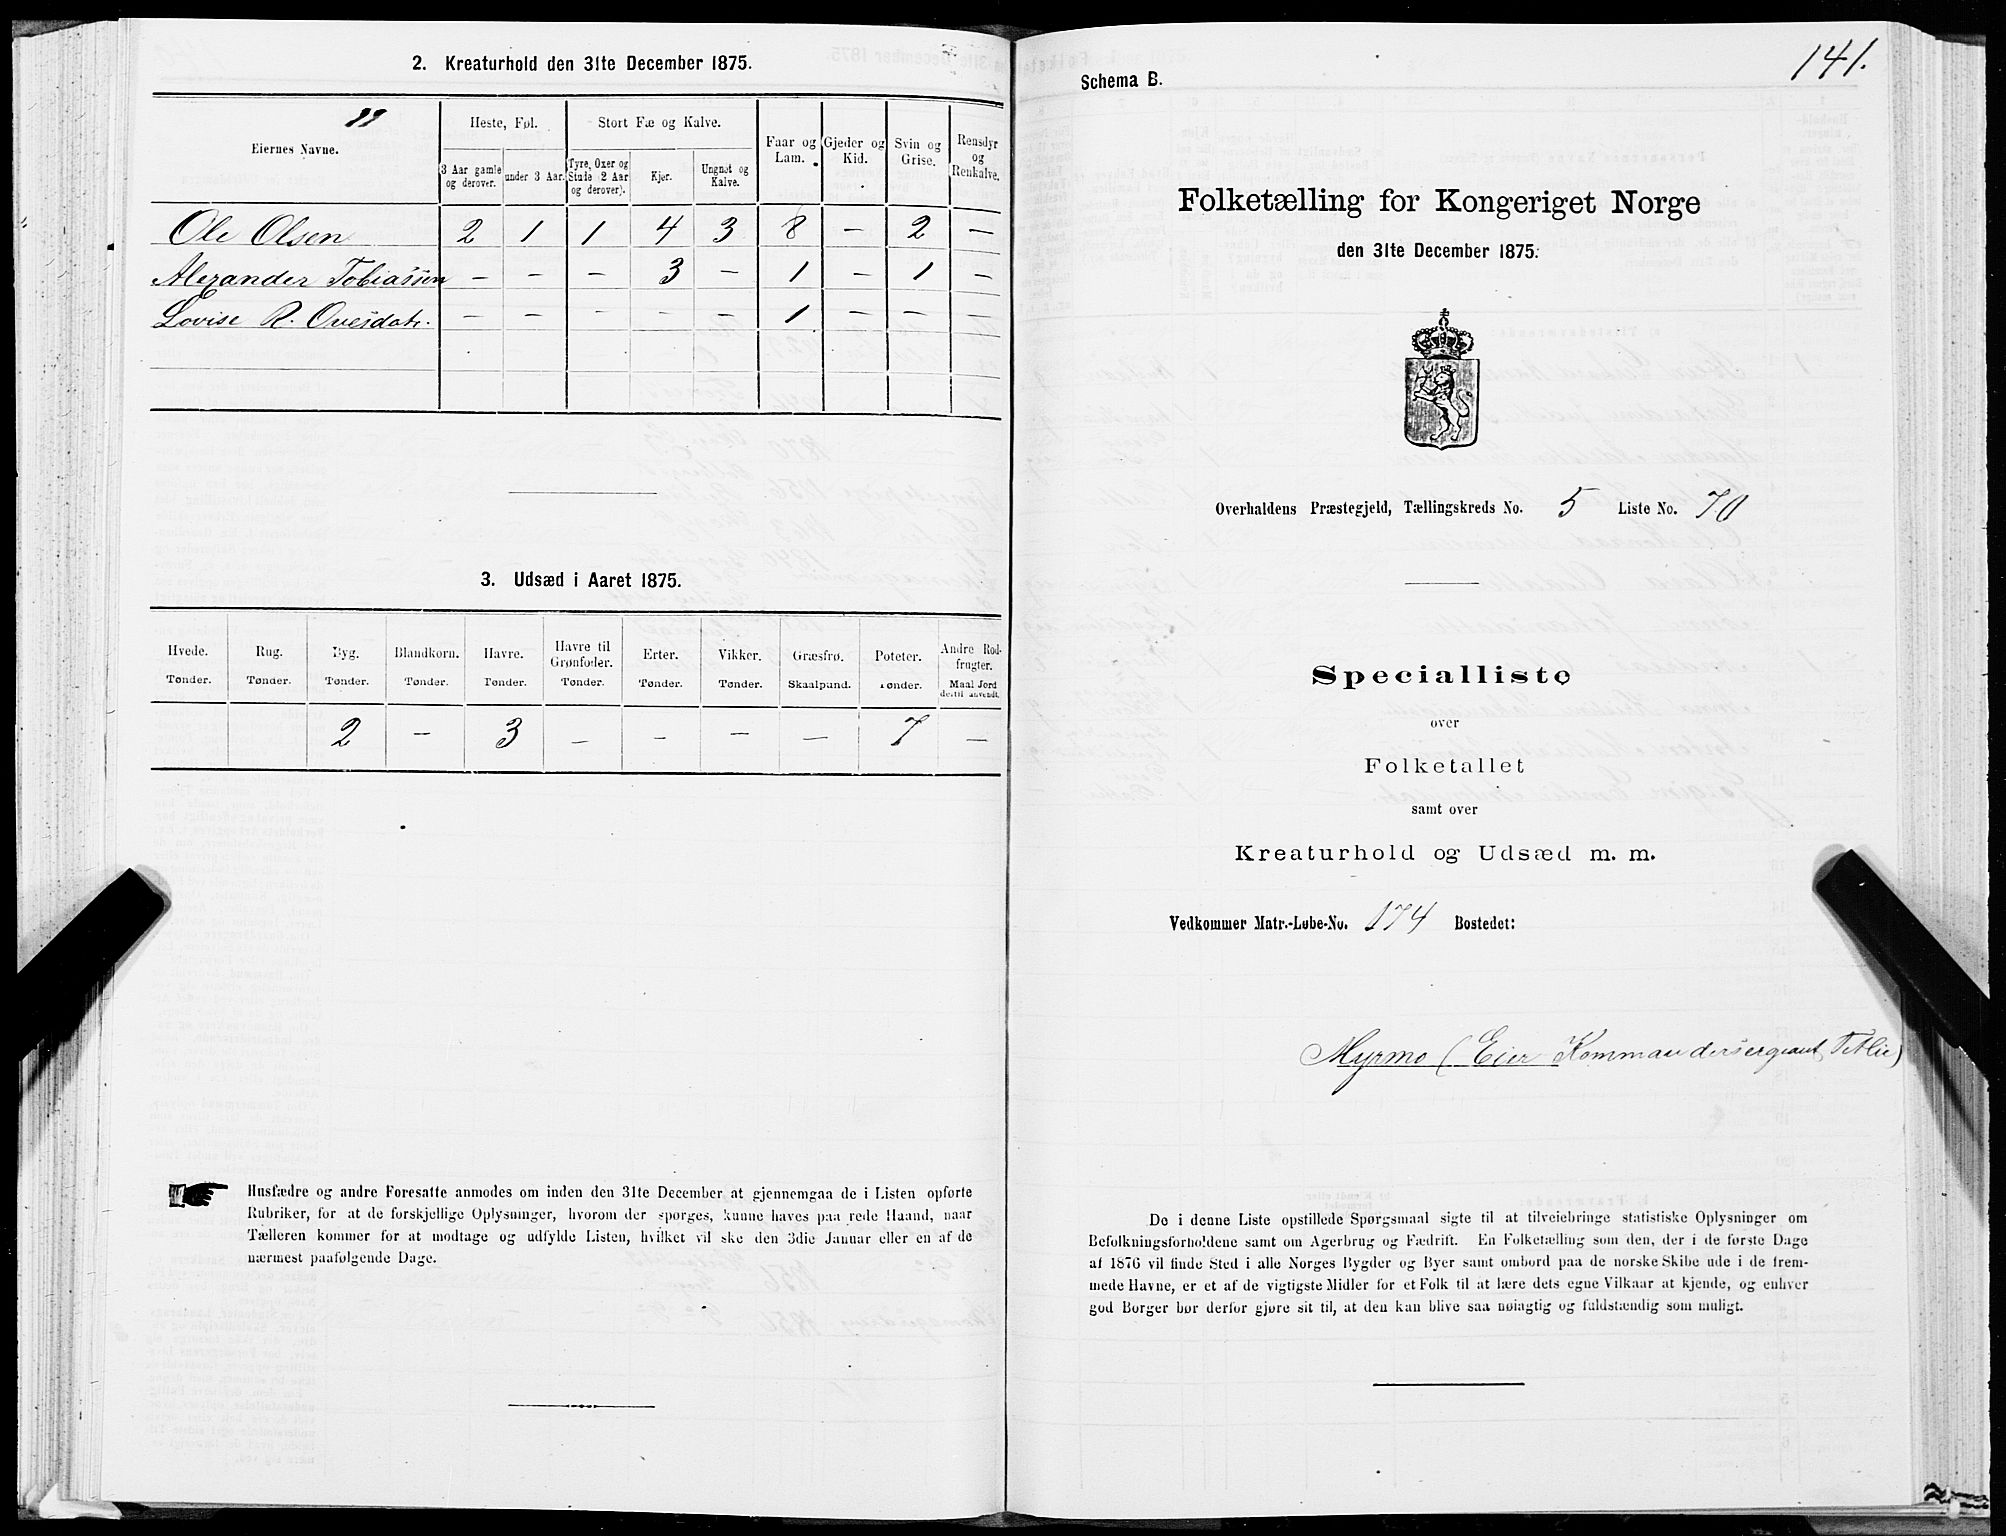 2. Kreaturhold den 31te December 1875.
11
Eiernes Navne.
Heste, Føl.
Stort Fæ og Kalve.
Faar og Lam.
Gjeder og Kid.
Svin og Grise.
Rensdyr og Renkalve.
3 Aar gamle og derover.
under 3 Aar.
Tyre, Oxer og Stude (2 Aar og derover).
Kjør.
Ungnøt og Kalve.
Ole Olsen 2 1 1 4 3 8 - 2 -
Alexander Tobiassen - - - 3 - 1 - 1 -
Lovise R. Ovesdatr. - - - - - 1 - - -
3. Udsæd i Aaret 1875.
Hvede. Rug. Byg. Blandkorn. Havre. Havre til Grønfoder. Erter. Vikker. Græsfrø. Poteter. Andre Rodfrugter.
Tønder. Tønder. Tønder. Tønder. Tønder. Tønder. Tønder. Tønder. Skaalpund. Tønder. Maal Jord dertil anvendt.
2 - 3 - - - - 7 -
Husfædre og andre Foresatte anmodes om inden den 31te December at gjennemgaa de i Listen opførte
Rubriker, for at de forskjellige Oplysninger, hvorom der spørges, kunne haves paa rede Haand, naar
Tælleren kommer for at modtage og udfylde Listen, hvilket vil ske den 3die Januar eller en af de
nærmest paafølgende Dage.
141.
Schema B.
Folketælling for Kongeriget Norge
den 31te December 1875.
Overhaldens Præstegjeld, Tællingskreds No. 5 Liste No. 70
Specialliste
over
Folketallet
samt over
Kreaturhold og Udsæd m. m.
Vedkommer Matr.-Løbe-No. 174 Bostedet:
Myrmo (Eier Kommandersergeant Tetlie)
De i denne Liste opstillede Spørgsmaal sigte til at tilveiebringe statistiske Oplysninger om
Befolkningsforholdene samt om Agerbrug og Fædrift. En Folketælling som den, der i de første Dage
af 1876 vil finde Sted i alle Norges Bygder og Byer samt ombord paa de norske Skibe ude i de frem-
mede Havne, er et af de vigtigste Midler for et Folk til at lære dets egne Vilkaar at kjende, og enhver
god Borger bør derfor gjøre sit til, at den kan blive saa nøiagtig og fuldstændig som muligt.